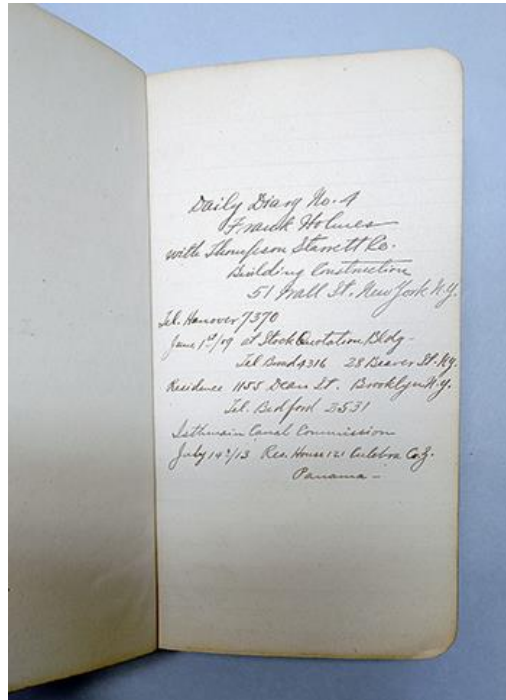 Daily Diary No. 4
Frank Holmes
with Thompson Starrett Co.
Building Construction
51 Wall St. New York N.Y.
Tel. Hanover 7370
June 1st/09 at Stock Quotation Bldg-
Tel Broad 4316 28 Beaver St. N.Y.
Residence 1155 Dean St. Brooklyn N.Y.
Tel. Bedford 2531
Isthmain Canal Commission
July 14th/13 Res. House 121 Culebra C.Z.
Panama -